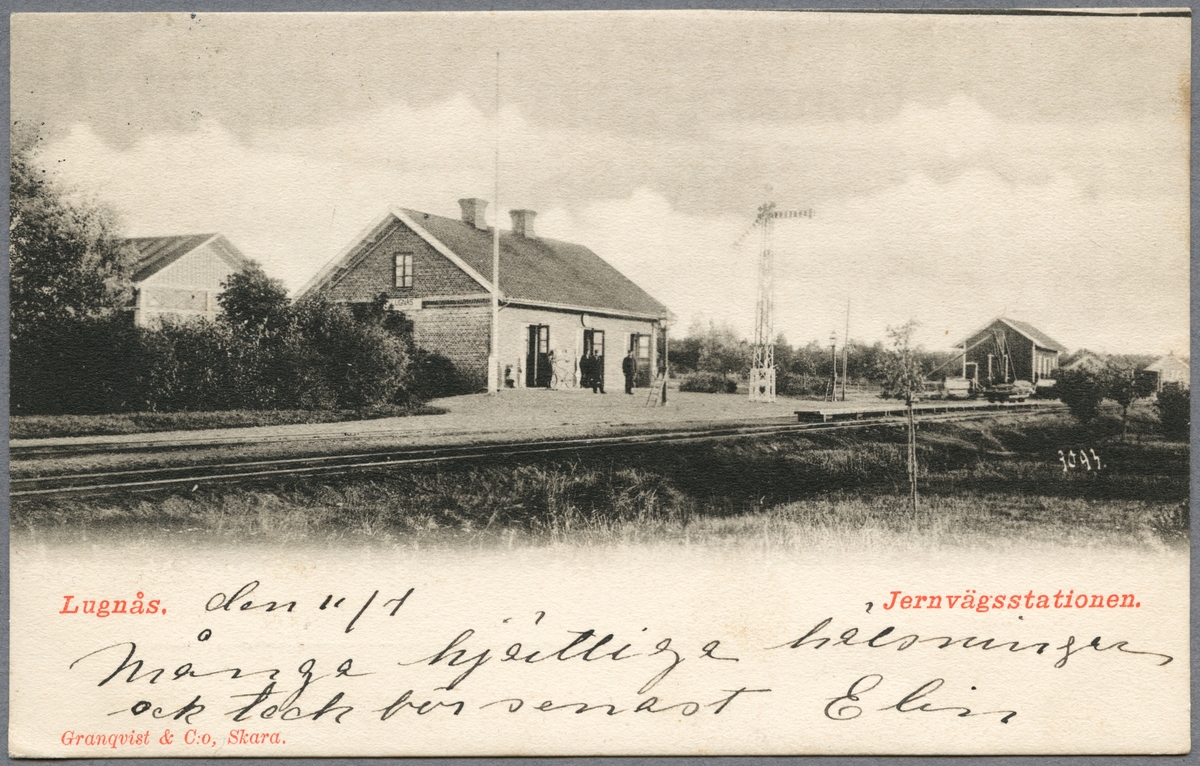 3093.
Lugnås. den 11/1 Jernvägsstationen.
Många hjärtliga hälsningar
ock tack för senast Elin
Granqvist & C:o, Skara.